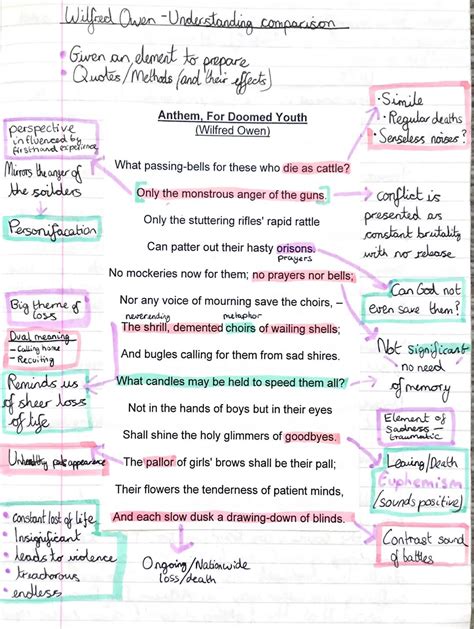 Wilfred Owen - Understanding comparison
• Given an element to prepare
• Quotes/Methods (and their effects)
Anthem, For Doomed Youth
(Wilfred Owen)
What passing-bells for these who die as cattle?
Only the monstrous anger of the guns.
Only the stuttering rifles' rapid rattle
Can patter out their hasty orisons.
prayers
No mockeries now for them; no prayers nor bells;
Nor any voice of mourning save the choirs, –
neverending
metaphor
The shrill, demented choirs of wailing shells;
And bugles calling for them from sad shires.
What candles may be held to speed them all?
Not in the hands of boys but in their eyes
Shall shine the holy glimmers of goodbyes.
The pallor of girls' brows shall be their pall;
Their flowers the tenderness of patient minds,
And each slow dusk a drawing-down of blinds.
perspective
influenced by
firsthand experience
Mirrors the anger of
the soilders
Personifacation
Big theme of
loss
Dual meaning
- Calling home
- Recruiting
Reminds us
of sheer loss
of life
Unhealthy pale appearance
• constant lost of life
• Insignificant
• leads to violence
• treadorous
• endless
Ongoing/Nationwide
loss/death
• Simile
• Regular deaths
• Senseless noises?
→ conflict is
presented as
constant brutality
with no release
Can God not
even save them?
Not significant
no need
of memory
Element of
Sadness -
traumatic
Leaving/Death
Euphemism
(sounds positive)
Contrast sound
of battles